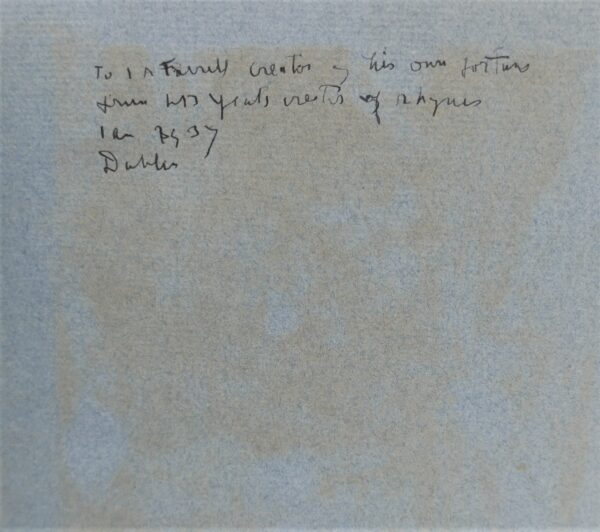 To J A Farrell creator of his own fortune
from WB Yeats creator of rhymes
Jan 37
Dublin